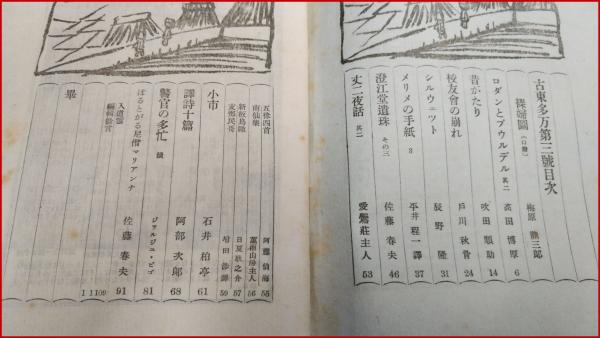 古東多万第三號目次
探婦圖(口繪) 梅原龍三郎
ロダンとブウルデル 其二 高田博厚 6
昔がたり 吹田順助 14
校友會の崩れ 戸川秋骨 24
シルウェット 辰野隆 31
メリメの手紙 3 平井程一譯 37
澄江堂遺珠 その三 佐藤春夫 46
丈二夜話 其二 愛鷺莊主人 53
五絛四首 55
南仙集 56
新版鳥瞰 日夏耿之介 57
支那民哥 增田渉譯 59
小市 石井柏亭 61
譯詩十篇 阿部次郎 68
警官の多忙 續 ジョルジュ・ビゴ 81
ほるとがる尼僧マリアンナ 佐藤春夫 91
編輯餘言
畢